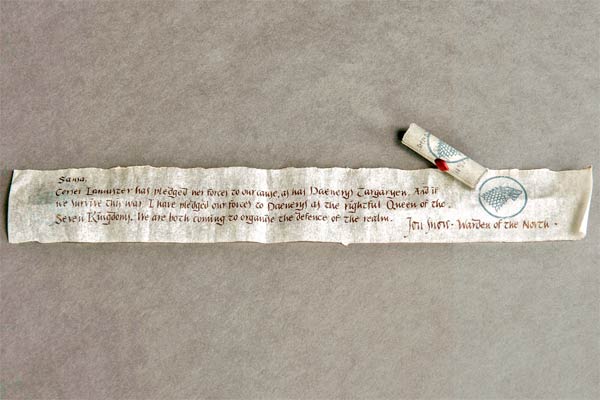 Sansa,
Cersei Lannister has pledged her forces to our cause, as has Daenerys Targaryen. And if
we survive this war, I have pledged our forces to Daenerys as the rightful Queen of the
Seven Kingdoms. We are both coming to organise the defence of the realm.
Jon Snow - Warden of the North -